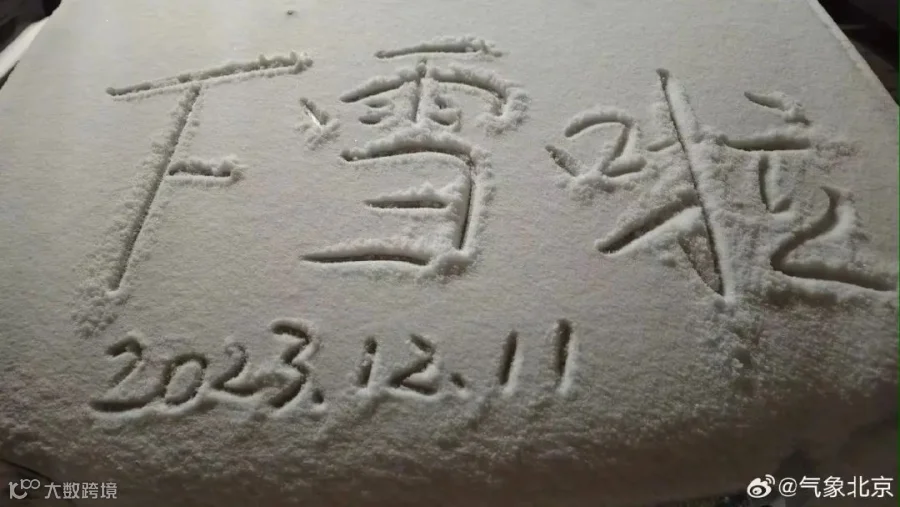 下雪啦
2023.12.11
大数跨境
@气象北京